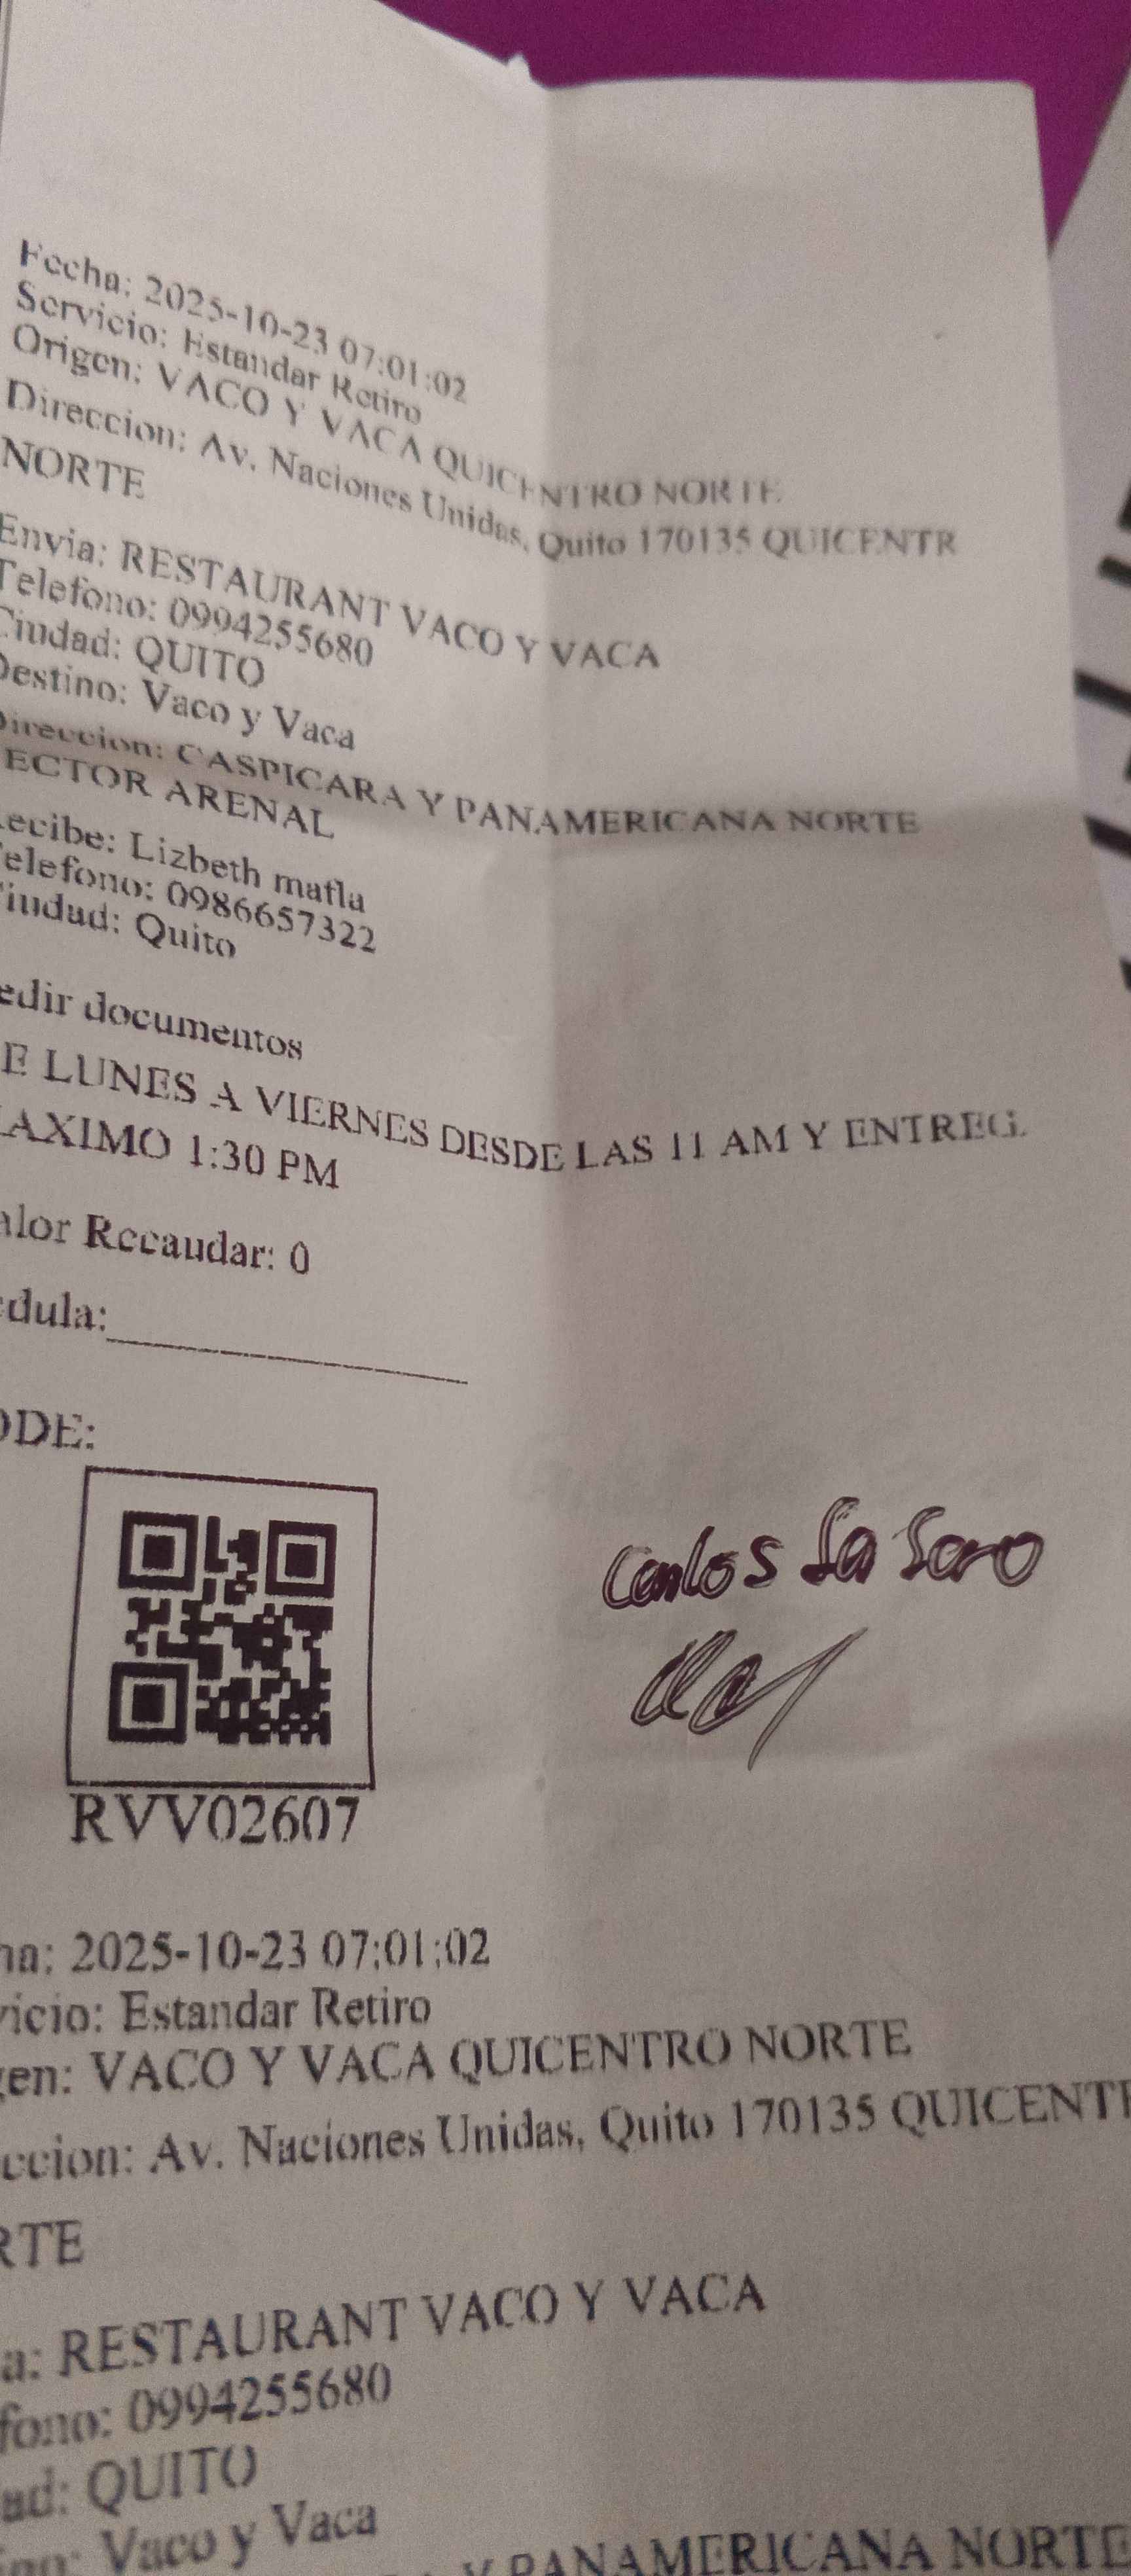 Fecha: 2025-10-23 07:01:02
Servicio: Estandar Retiro
Origen: VACO Y VACA QUICENTRO NORTE
Direccion: Av. Naciones Unidas, Quito 170135 QUICENTR
NORTE
Envia: RESTAURANT VACO Y VACA
Telefono: 0994255680
Ciudad: QUITO
Destino: Vaco y Vaca
Direccion: CASPICARA Y PANAMERICANA NORTE
ECTOR ARENAL
ecibe: Lizbeth mafla
elefono: 0986657322
iudad: Quito
edir documentos
E LUNES A VIERNES DESDE LAS 11 AM Y ENTREG
AXIMO 1:30 PM
alor Recaudar: 0
edula:
ODE:
Carlos
RVV02607
ha: 2025-10-23 07:01:02
vicio: Estandar Retiro
gen: VACO Y VACA QUICENTRO NORTE
ccion: Av. Naciones Unidas, Quito 170135 QUICENTR
RTE
a: RESTAURANT VACO Y VACA
fono: 0994255680
ad: QUITO
ino: Vaco y Vaca
Y PANAMERICANA NORTE